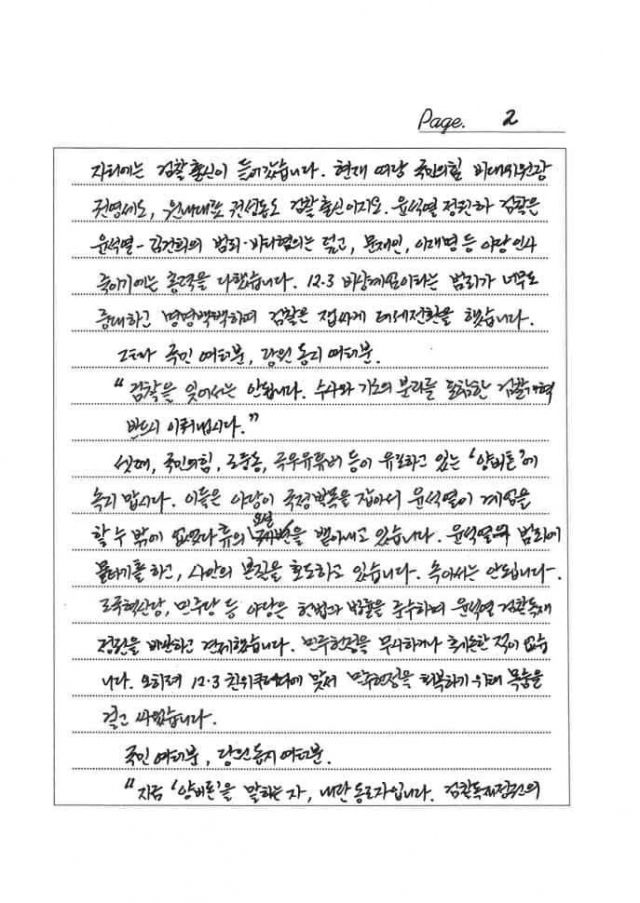 Page. 2
자리에는 검찰 출신이 들어갔습니다. 현재 여당 국민의힘 비대위원장
권영세도, 원내대표 권성동도 검찰 출신이지요. 윤석열 정권 하 검찰은
윤석열-김건희의 범죄·비리혐의는 덮고, 문재인, 이재명 등 야당 인사
죽이기에는 총력을 다했습니다. 12.3 비상계엄이라는 범죄가 너무도
중대하고 명명백백하며 검찰은 잽싸게 태세전환을 했습니다.
그러나 국민 여러분, 당원 동지 여러분.
“검찰을 잊어서는 안됩니다. 수사와 기소의 분리를 포함한 검찰개혁
반드시 이뤄냅시다.”
셋째, 국민의힘, 조중동, 극우유튜버 등이 유포하고 있는 ‘양비론’에
속지 맙시다. 이들은 야당이 국정 발목을 잡아서 윤석열이 계엄을
할 수 밖에 없었다 류의 요설을 뱉어내고 있습니다. 윤석열의 범죄에
물타기를 하고, 사안의 본질을 호도하고 있습니다. 속아서는 안됩니다.
조국혁신당, 민주당 등 야당은 헌법과 법률을 준수하며 윤석열 검찰독재
정권을 비판하고 견제했습니다. 민주헌정을 무시하거나 훼손한 적이 없습
니다. 오히려 12.3 친위쿠데타에 맞서 민주헌정을 회복하기 위해 목숨을
걸고 싸웠습니다.
국민 여러분, 당원동지 여러분.
“지금 ‘양비론’을 말하는 자, 내란 동조자입니다. 검찰독재정권의